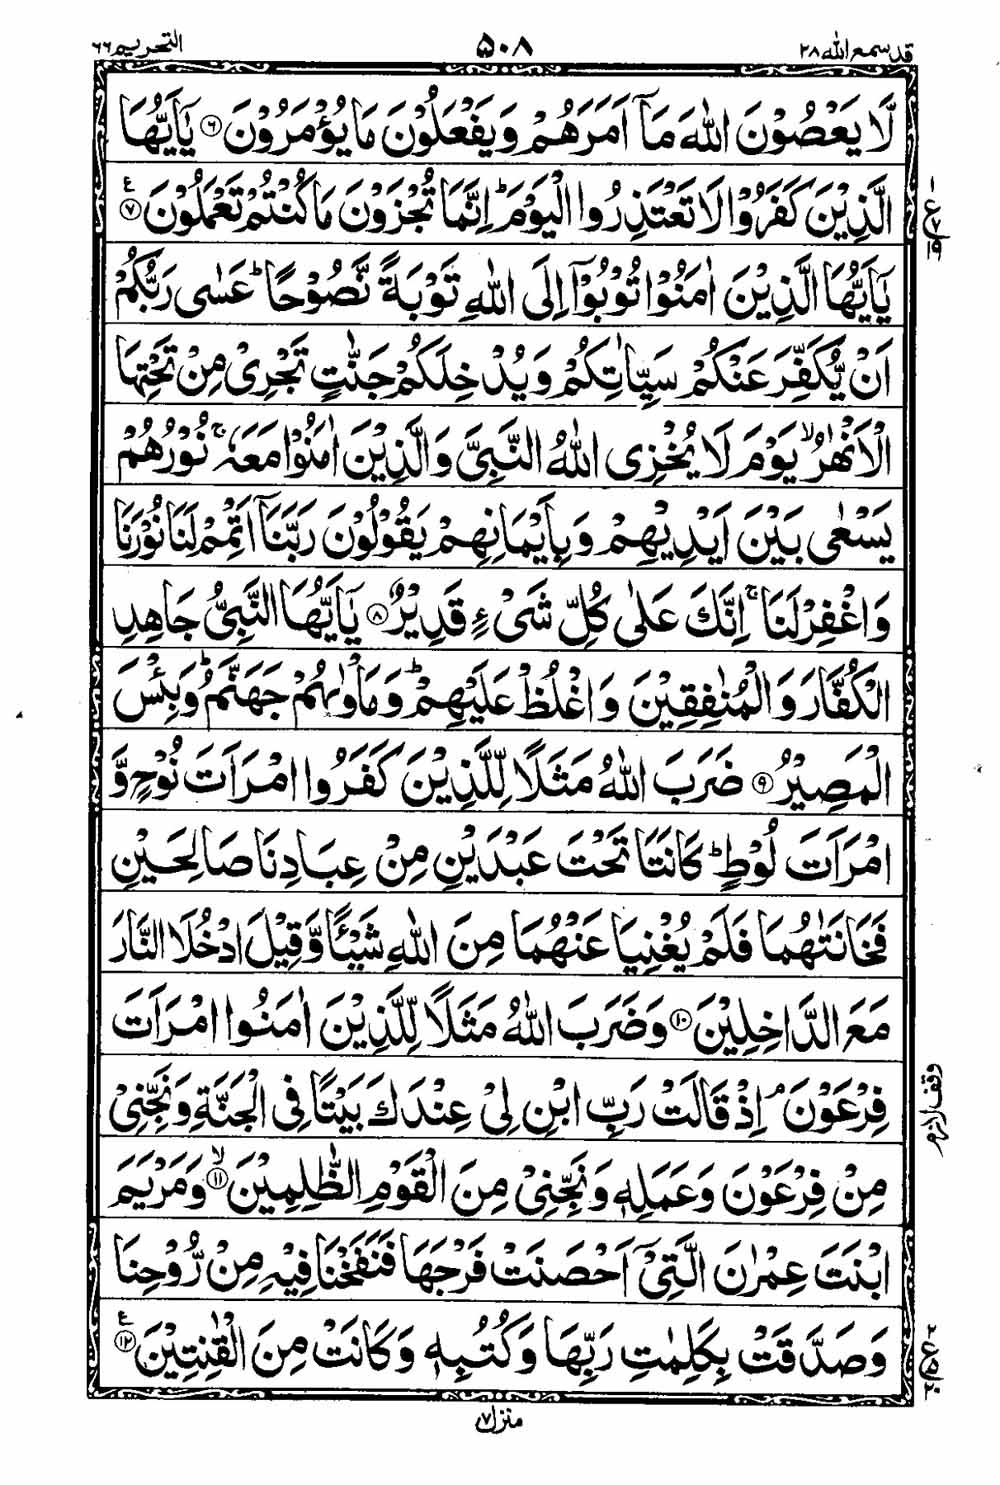 قد سمع الله ۲۸
۵۰۸
التحريم ۶۶
لَّا يَعْصُوْنَ اللّٰهَ مَاۤ اَمَرَهُمْ وَ يَفْعَلُوْنَ مَا يُؤْمَرُوْنَ ۶ يٰۤاَيُّهَا
الَّذِيْنَ كَفَرُوْا لَا تَعْتَذِرُوا الْيَوْمَ ؕ اِنَّمَا تُجْزَوْنَ مَا كُنْتُمْ تَعْمَلُوْنَ ۷ ع
يٰۤاَيُّهَا الَّذِيْنَ اٰمَنُوْا تُوْبُوْۤا اِلَى اللّٰهِ تَوْبَةً نَّصُوْحًا ؕ عَسٰى رَبُّكُمْ
اَنْ يُّكَفِّرَ عَنْكُمْ سَيِّاٰتِكُمْ وَ يُدْخِلَكُمْ جَنّٰتٍ تَجْرِيْ مِنْ تَحْتِهَا
الْاَنْهٰرُ ۙ يَوْمَ لَا يُخْزِى اللّٰهُ النَّبِيَّ وَ الَّذِيْنَ اٰمَنُوْا مَعَهٗ ۚ نُوْرُهُمْ
يَسْعٰى بَيْنَ اَيْدِيْهِمْ وَ بِاَيْمَانِهِمْ يَقُوْلُوْنَ رَبَّنَاۤ اَتْمِمْ لَنَا نُوْرَنَا
وَ اغْفِرْ لَنَا ۚ اِنَّكَ عَلٰى كُلِّ شَيْءٍ قَدِيْرٌ ۸ يٰۤاَيُّهَا النَّبِيُّ جَاهِدِ
الْكُفَّارَ وَ الْمُنٰفِقِيْنَ وَ اغْلُظْ عَلَيْهِمْ ؕ وَ مَاْوٰىهُمْ جَهَنَّمُ ؕ وَ بِئْسَ
الْمَصِيْرُ ۹ ضَرَبَ اللّٰهُ مَثَلًا لِّلَّذِيْنَ كَفَرُوا امْرَاَتَ نُوْحٍ وَّ
امْرَاَتَ لُوْطٍ ؕ كَانَتَا تَحْتَ عَبْدَيْنِ مِنْ عِبَادِنَا صَالِحَيْنِ
فَخَانَتٰهُمَا فَلَمْ يُغْنِيَا عَنْهُمَا مِنَ اللّٰهِ شَيْـًٔا وَّ قِيْلَ ادْخُلَا النَّارَ
مَعَ الدّٰخِلِيْنَ ۱۰ وَ ضَرَبَ اللّٰهُ مَثَلًا لِّلَّذِيْنَ اٰمَنُوا امْرَاَتَ
فِرْعَوْنَ ۘ اِذْ قَالَتْ رَبِّ ابْنِ لِيْ عِنْدَكَ بَيْتًا فِي الْجَنَّةِ وَ نَجِّنِيْ
مِنْ فِرْعَوْنَ وَ عَمَلِهٖ وَ نَجِّنِيْ مِنَ الْقَوْمِ الظّٰلِمِيْنَ ۱۱ ۙ وَ مَرْيَمَ
ابْنَتَ عِمْرٰنَ الَّتِيْۤ اَحْصَنَتْ فَرْجَهَا فَنَفَخْنَا فِيْهِ مِنْ رُّوْحِنَا
وَ صَدَّقَتْ بِكَلِمٰتِ رَبِّهَا وَ كُتُبِهٖ وَ كَانَتْ مِنَ الْقٰنِتِيْنَ ۱۲ ع
وقف لازم
منزل ۷